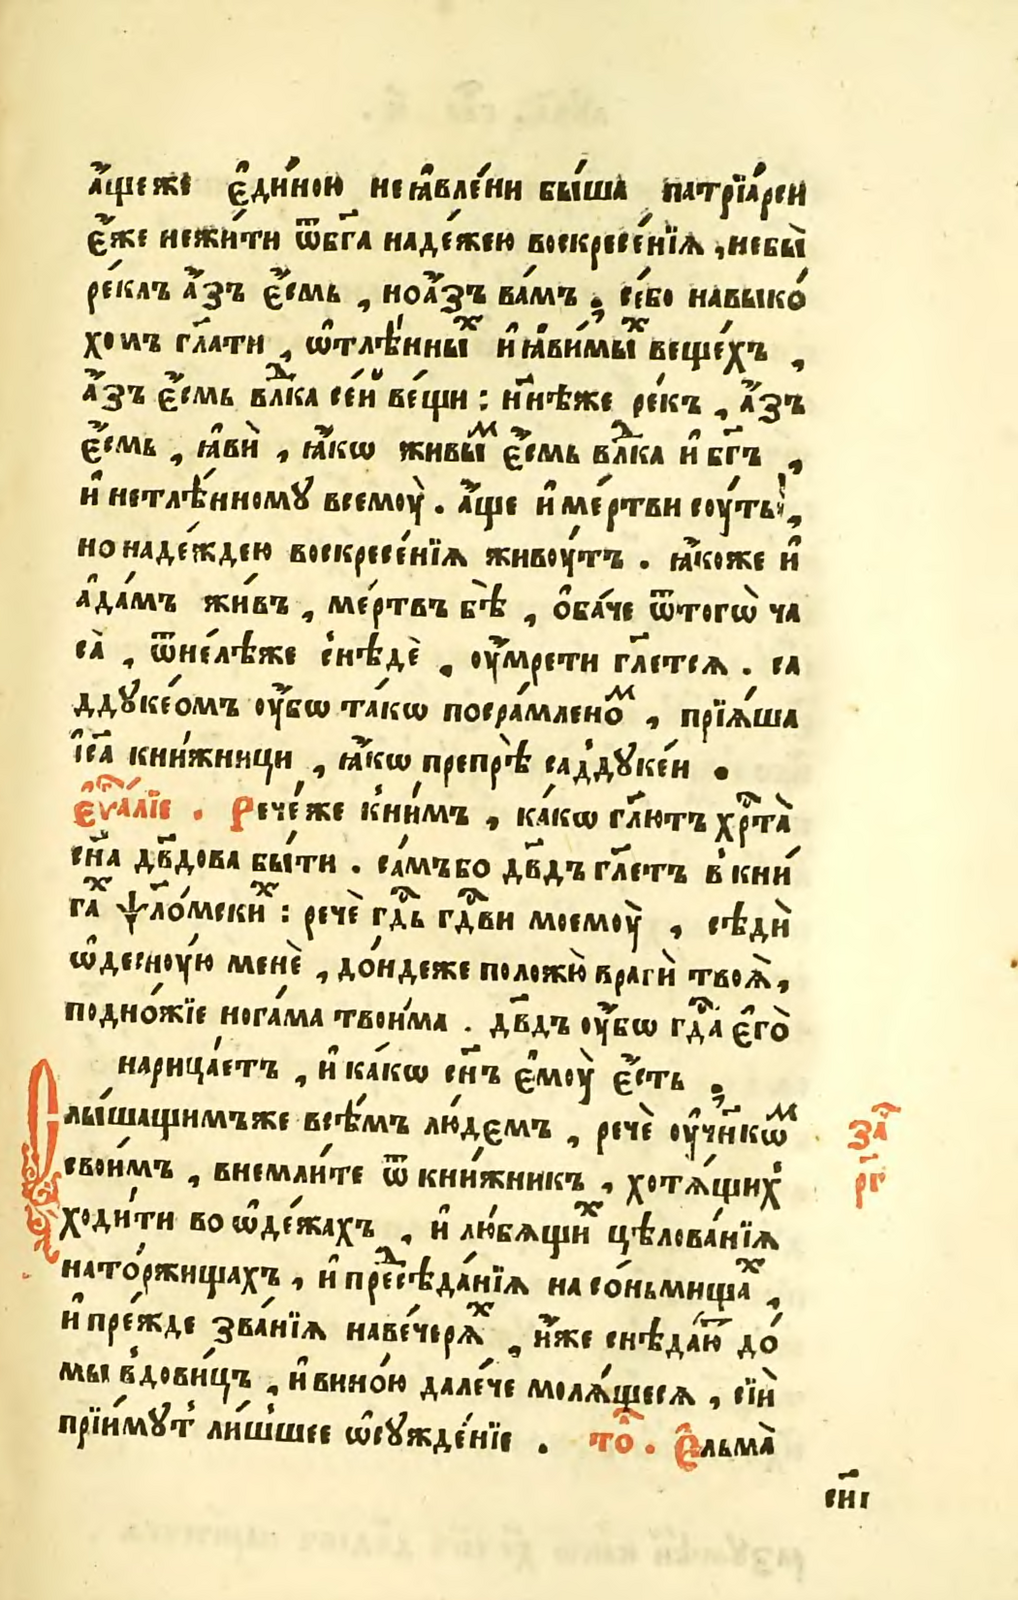 а҆́щеже є҆ди́ною неꙗ҆вле́ни бы́ша патрїа́рси
є҆́же нежи́ти ѿбг҃а наде́жею воскресе́нїѧ, небы̀
ре́клъ а҆́зъ є҆́смь, ноа҆́зъ ва́мъ. се́бо навыко́
хомъ гл҃ати, ѡ҆тлѣ́нныⷯ и҆ꙗ҆ви́мыⷯ веще́хъ,
а҆́зъ є҆́смь влⷣка се́й ве́щи: нн҃ѣже ре́къ, а҆́зъ
є҆́смь, ꙗ҆вѝ, ꙗ҆́кѡ живыⷨ є҆́смь влⷣка и҆ бг҃ъ,
и҆ нетлѣ́нному всемоу̀. а҆́ще и҆ ме́ртви соу́ть,
но наде́ждею воскресе́нїѧ живоу́тъ. ꙗ҆́коже и҆
а҆да́мъ жи́въ, ме́ртвъ бѣ̀, ѻ҆ба́че ѿтогѡ̀ ча
са̀, ѿне́лѣже снѣдѐ, оу҆́мрети гл҃етсѧ. са
ддуке́омъ оу҆́бѡ та́кѡ посра́мленоⷨ, прїѧ́ша
і҆с҃а кни́жници, ꙗ҆́кѡ препрѣ̀ саддуке́и.
є҆ѵⷢ҇а́лїе. Рече́же книи́мъ, ка́кѡ гл҃ютъ хрⷭ҇та̀
сн҃а дв҃дова бы́ти. са́мъбо дв҃дъ гл҃етъ в кни́
гаⷯ ѱло́мскиⷯ: речѐ гдⷭ҇ь гдⷭ҇ви моемоу̀, сѣдѝ
ѡ҆десноу́ю менѐ, до́ндеже положю̀ врагѝ твоѧ̀,
подно́жїе нога́ма твои́ма. дв҃дъ оу҆́бѡ гдⷭ҇а є҆го̀
нарица́етъ, и҆ ка́кѡ сн҃ъ є҆моу̀ є҆́сть.
Слы́шащимъже всѣ́мъ лю́демъ, речѐ оу҆чн҃кѡⷨ
свои́мъ, внемли́те ѿ кни́жникъ, хотѧ́щих
ходи́ти во ѡ҆де́жахъ, и҆ лю́бѧщиⷯ цѣлова́нїѧ
нато́ржищахъ, и҆ преⷣсѣда́нїѧ на со́ньмищаⷯ,
и҆ пре́жде зва́нїѧ наве́черѧⷯ, и҆́же снѣда́ютⷮ до́
мы вдови́цъ, и҆ вино́ю дале́че молѧ́щесѧ, сїѝ
прїи́мут ли́шшее ѡ҆сужде́нїе. то́. Є҆льма̀
заⷱ҇
рг҃
сн҃ı